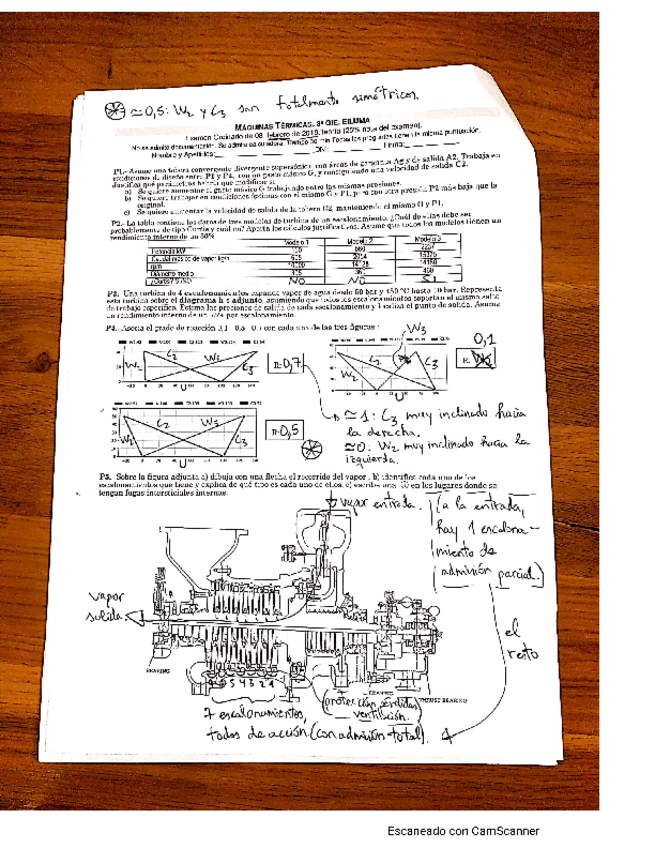 ≃ 0,5: W2 y C3 son totalmente simétricos.
MÁQUINAS TÉRMICAS. 3º GIE. EILUMA
Examen Ordinario de 08 febrero de 2019. teoría (25% nota del examen).
No se admite documentación. Se admite calculadora. Tiempo 50 min Todas las preguntas tienen la misma puntuación.
Nombre y Apellidos: DNI: Firma:
P1.- Asume una tobera convergente divergente supersónica con áreas de garganta Ag y de salida A2. Trabaja en
condiciones de diseño entre P1 y P2, con un gasto másico G, y consiguiendo una velocidad de salida C2.
Justifica qué parámetros habría que modificar si
a) Se quiere aumentar el gasto másico G trabajando entre las mismas presiones.
b) Se quiere trabajar en condiciones óptimas con el mismo G y P1, pero con otra presión P2 más baja que la
original.
c) Se quiere aumentar la velocidad de salida de la tobera C2, manteniendo el mismo G y P1.
P2.- La tabla contiene los datos de tres modelos de turbina de un escalonamiento. ¿Cuál de ellas debe ser
probablemente de tipo Curtis y cuál no? Aporta los cálculos justificativos. Asume que todos los modelos tienen un
rendimiento interno de un 50%
Modelo 1 Modelo 2 Modelo 3
Potencia kW
Caudal másico de vapor kg/h
rpm
Diámetro medio
¿Curtis? SI/NO NO NO SI
P3. Una turbina de 4 escalonamientos expande vapor de agua desde 50 bar y 450 ºC hasta 10 bar. Representa
esta turbina sobre el diagrama h s adjunto, asumiendo que todos los escalonamientos soportan el mismo salto
de trabajo específico. Estima las presiones de salida de cada escalonamiento y localiza el punto de salida. Asume
un rendimiento interno de un 75% por escalonamiento.
P4.- Asocia el grado de reacción 0,1 - 0,5 - 0,7 con cada una de las tres figuras :
W2 C2 W3 C3 U R: 0,7
W3
W2 C2 C3 U 0,1
R:
W2 C2 W3 C3 U R: 0,5
≃ 1: C3 muy inclinado hacia
la derecha.
≃ 0: W2 muy inclinado hacia la
izquierda.
P5. Sobre la figura adjunta a) dibuja con una flecha el recorrido del vapor , b) identifica cada uno de los
escalonamientos que tiene y explica de qué tipo es cada uno de ellos, c) escribe una en los lugares donde se
tengan fugas intersticiales internas.
vapor entrada.
(a la entrada,
hay 1 escalona-
miento de
admisión parcial.)
vapor
salida
el
resto
BEARING
BEARING
THRUST BEARING
7 6 5 4 3 2 1
protección pérdidas
ventilación.
7 escalonamientos,
todos de acción (con admisión total).
Escaneado con CamScanner